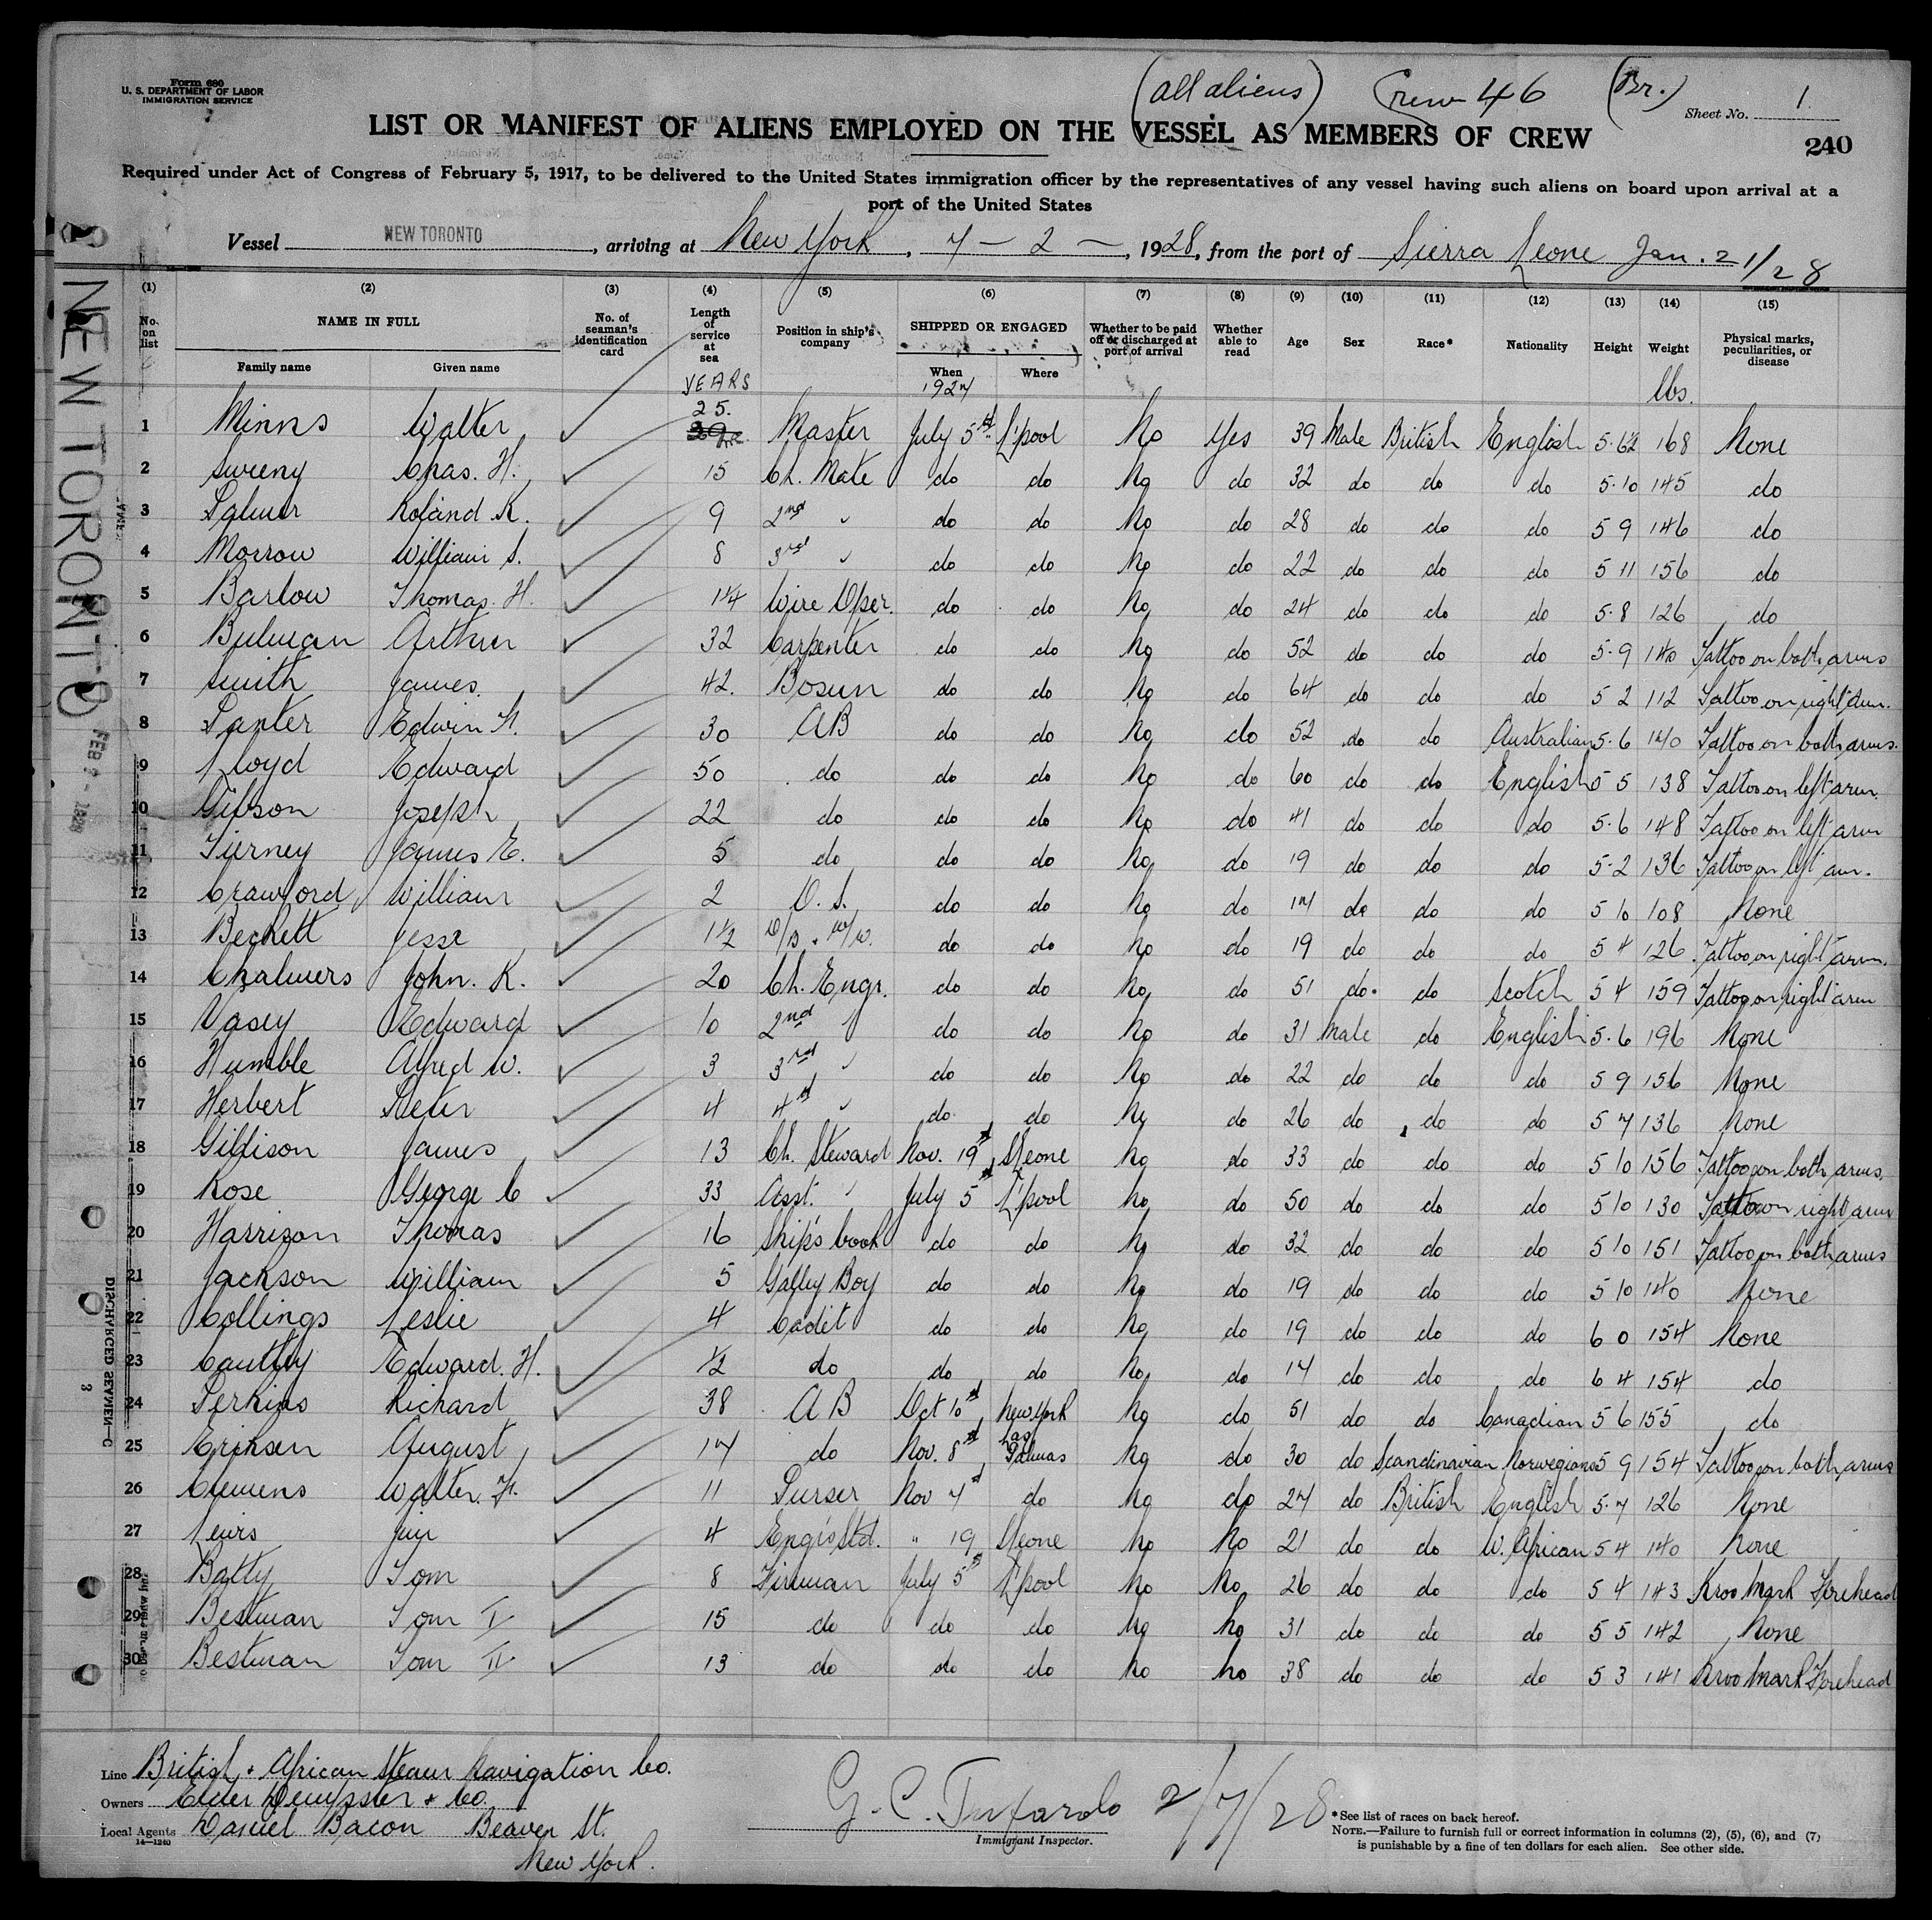 Form 680
U. S. DEPARTMENT OF LABOR
IMMIGRATION SERVICE
(all aliens) Crew 46 (Br.)
Sheet No. 1
LIST OR MANIFEST OF ALIENS EMPLOYED ON THE VESSEL AS MEMBERS OF CREW
240
Required under Act of Congress of February 5, 1917, to be delivered to the United States immigration officer by the representatives of any vessel having such aliens on board upon arrival at a
port of the United States
Vessel NEW TORONTO, arriving at New York, 7 - 2 -, 1928, from the port of Sierra Leone Jan. 21/28
NEW TORONTO
(1) (2) (3) (4) (5) (6) (7) (8) (9) (10) (11) (12) (13) (14) (15)
No. on list NAME IN FULL Family name Given name No. of seaman's identification card Length of service at sea Position in ship's company SHIPPED OR ENGAGED When Where Whether to be paid off or discharged at port of arrival Whether able to read Age Sex Race* Nationality Height Weight Physical marks, peculiarities, or disease
YEARS 1927 lbs.
1 Minns Walter 25. Master July 5th L'pool No Yes 39 Male British English 5·6½ 168 None
2 Sweeny Chas. H. 15 Ch. Mate do do No do 32 do do do 5·10 145 do
3 Roland K. 9 2nd " do do No do 28 do do do 5 9 146 do
4 Morrow William S. 8 3rd " do do No do 22 do do do 5 11 156 do
5 Barlow Thomas. H. 1¼ Wire Oper. do do No do 24 do do do 5·8 126 do
6 Bulman Arthur 32 Carpenter do do No do 52 do do do 5·9 140 Tattoo on both arms
7 Smith James. 42. Bosun do do No do 64 do do do 5 2 112 Tattoo on right arm.
8 Santer Edwin 30 AB do do No do 52 do do Australian 5·6 140 Tattoo on both arms.
9 Lloyd Edward 50 do do do No do 60 do do English 5 5 138 Tattoo on left arm.
10 Gibson Joseph 22 do do do No do 41 do do do 5·6 148 Tattoo on left arm
11 Tierney James E. 5 do do do No do 19 do do do 5·2 136 Tattoo on left arm.
12 Crawford William 2 O. S. do do No do 17 do do do 5 10 108 None
13 Beckett Jesse 1½ do do No do 19 do do do 5 4 126 Tattoo on right arm.
14 Chalmers John. K. 20 Ch. Engr. do do No do 51 do. do Scotch 5 4 159 Tattoo on right arm
15 Vasey Edward 10 2nd " do do No do 31 Male do English 5·6 196 None
16 Humble Alfred W. 3 3rd " do do No do 22 do do do 5 9 156 None
17 Herbert Peter 4 4th " do do No do 26 do do do 5 7 136 None
18 Gillison James 13 Ch. Steward Nov. 19th SLeone No do 33 do do do 5 10 156 Tattoo on both arms.
19 Rose George C 33 Asst. " July 5th L'pool No do 50 do do do 5 10 130 Tattoo on right arm
20 Harrison Thomas 16 Ship's Cook do do No do 32 do do do 5 10 151 Tattoo on both arms
21 Jackson William 5 Galley Boy do do No do 19 do do do 5 10 140 None
22 Collings Leslie 4 Cadet do do No do 19 do do do 6 0 154 None
23 Cautley Edward. H. ½ do do do No do 17 do do do 6 4 154 do
24 Perkins Richard 38 AB Oct 10th New York No do 51 do do Canadian 5 6 155 do
25 Eriksen August 17 do Nov. 8th Las Palmas No do 30 do Scandinavian Norwegian 5 9 154 Tattoo on both arms
26 Clemens Walter. 11 Purser Nov 7th do No do 27 do British English 5·7 126 None
27 Jim 4 Engr's Std. " 19 SLeone No No 21 do do W. African 5 4 140 None
28 Batty Tom 8 Fireman July 5th L'pool No No 26 do do do 5 4 143 Kroo Mark Forehead
29 Bestman Tom I 15 do do do No No 31 do do do 5 5 142 None
30 Bestman Tom II 13 do do do No No 38 do do do 5 3 141 Kroo Mark Forehead
DISCHARGED SEAMEN-C
Line British & African Steam Navigation Co.
Owners Elder Dempster & Co.
Local Agents Daniel Bacon Beaver St.
14-1240
New York.
2/7/28
Immigrant Inspector.
*See list of races on back hereof.
NOTE.—Failure to furnish full or correct information in columns (2), (5), (6), and (7)
is punishable by a fine of ten dollars for each alien. See other side.